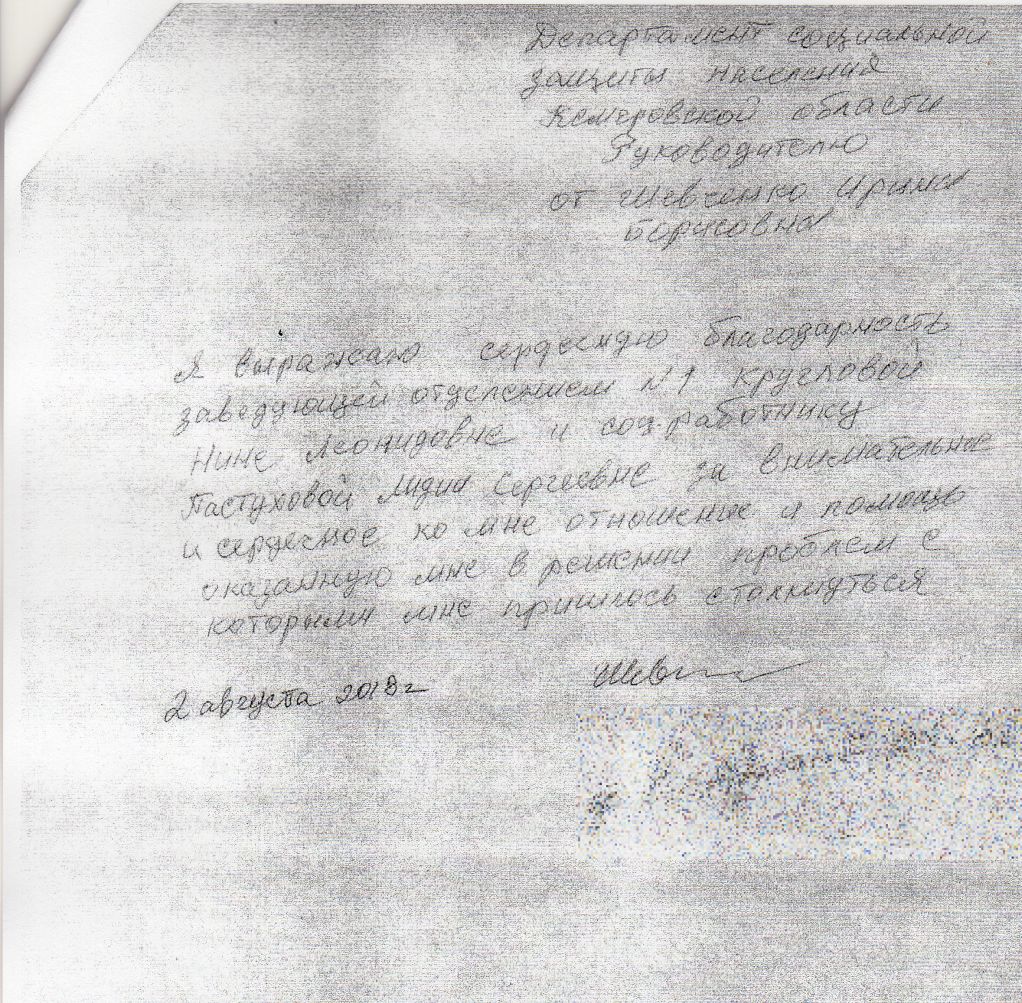 Департамент социальной
защиты населения
Кемеровской области
Руководителю
от Шевченко Ирина
Борисовна
Я выражаю сердечную благодарность
заведующей отделением №1 Кругловой
Нине Леонидовне и соц.работнику
Пастуховой Лидии Сергеевне за внимательное
и сердечное ко мне отношение и помощь
оказанную мне в решении проблем с
которыми мне пришлось столкнуться
2 августа 2018г Шев